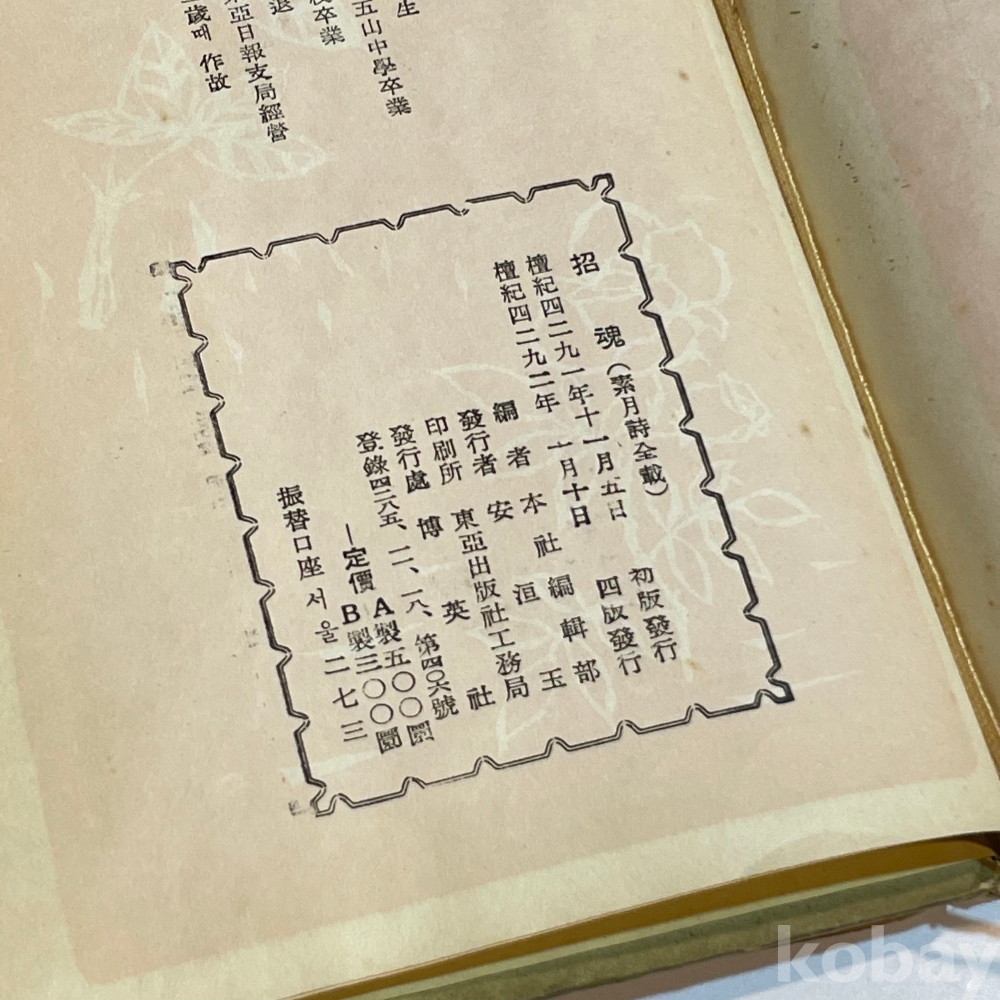 生
五山中學卒業
校卒業
退
東亞日報支局經營
歲때 作故
招魂(素月詩全載)
檀紀四二九一年十一月五日 初版發行
檀紀四二九二年 一月十日 四版發行
編者 本社編輯部
發行者 安洹玉
印刷所 東亞出版社工務局
發行處 博英社
登錄四二八五、一二、一八、第四〇六號
定價 A製五〇〇圜
B製三〇〇圜
振替口座 서울 二七三
kobay